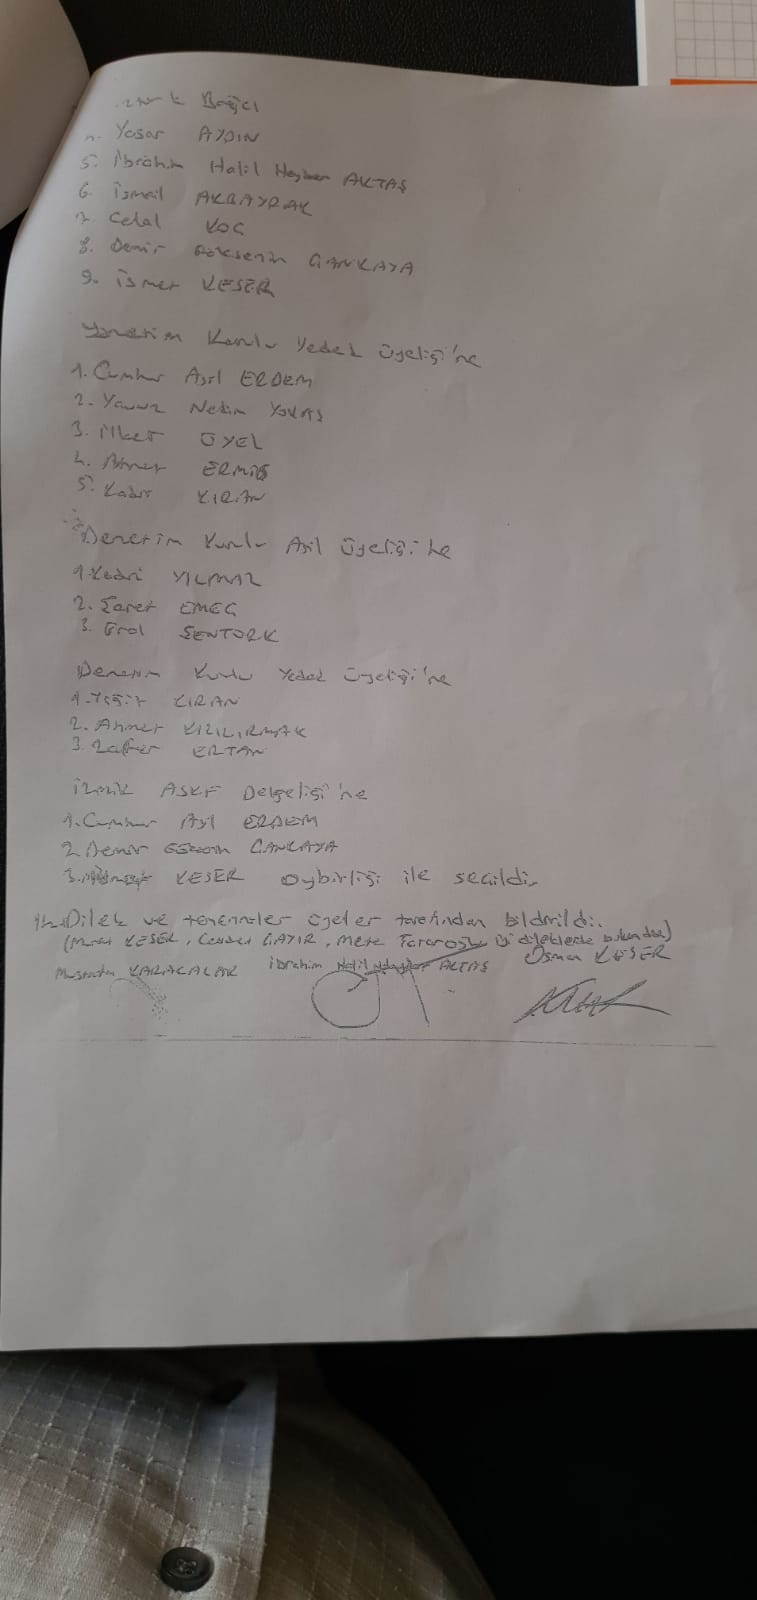 Bağcı
Yaşar AYDIN
5. İbrahim Halil AKTAŞ
6. İsmail AKBAYRAK
7. Celal KOÇ
8. Demir Göksenin ÇANKAYA
9. İsmet KESER
Yönetim Kurulu Yedek Üyeliği'ne
1. Cumhur Asil ERDEM
2. Yavuz Nedim YOVAŞ
3. İlker ÜYEL
4. Ahmet ERMİŞ
5. Kadir KIRAN
Denetim Kurulu Asil Üyeliği'ne
1. Kadri YILMAZ
2. EMEÇ
3. Erol ŞENTÜRK
Denetim Kurulu Yedek Üyeliği'ne
1. Yiğit KIRAN
2. Ahmet KIZILIRMAK
3. Zafer ERTAN
İznik ASKF Delgeliği'ne
1. Cumhur Asil ERDEM
2. Demir ÇANKAYA
3. KESER oybirliği ile seçildi.
Dilek ve temenniler üyeler tarafından bildirildi.
(Murat KESER, ÇAYIR, Mete iyi dileklerde bulundu)
Mustafa KARACALAR İbrahim Halil AKTAŞ Osman KESER